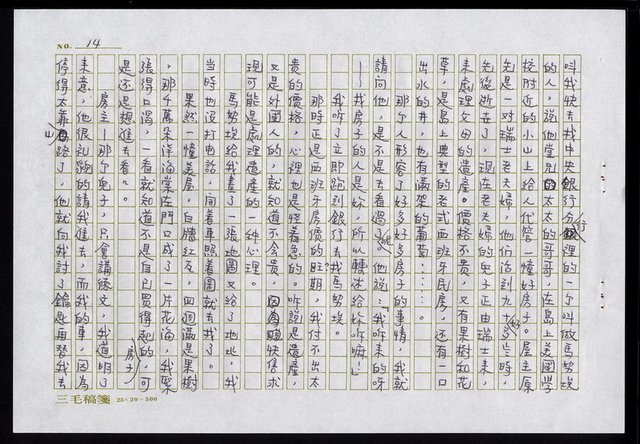 NO. 14
叫我快去找中央銀行分行裡的一個叫做馬努埃
的人,說他堂兄的太太的哥哥,在島上美國學
校附近的小山上給人代管一幢好房子。屋主原
先是一對瑞士老夫婦,他們活到九十多歲時,
先後逝去了,現在老夫婦的兒子正由瑞士來,
來處理父母的遺產。價格不貴,又有果樹和花
草,是島上典型的老式西班牙民房,還有一口
出水的井,也有滿架的葡萄……。
那個人形容了好多好多房子的事情,我就
請問他,是不是去看過了,他說:「我听來的呀
——找房子的人是妳,所以轉述給妳听嘛!」
我听了立即跑到銀行去找馬努埃。
那時正是西班牙房價的旺期,我付不出太
貴的價格,心裡也是怪着急的。听說是遺產,
又是外國人的,就知道不会貴,因為趕快售求
現可能是處理遺產的一种心理。
馬努埃給我畫了一張地圖又給了地址,我
当時也沒打電話,開着車照着圖就去找了。
果然一幢美屋,白牆紅瓦,四週滿是果樹
,那千萬朵洋海棠在門口成了一片花海,我緊
張得口渴,一看就知道不是自己買得起的,可
是还是想進去看。
房主——那個兒子,只會講德文,我道明了
來意,他很礼貌的請我進去,而我的車,因為
停得太靠山路了,他就向我討了鑰匙再替我去
房子
三毛稿箋 25×20=500